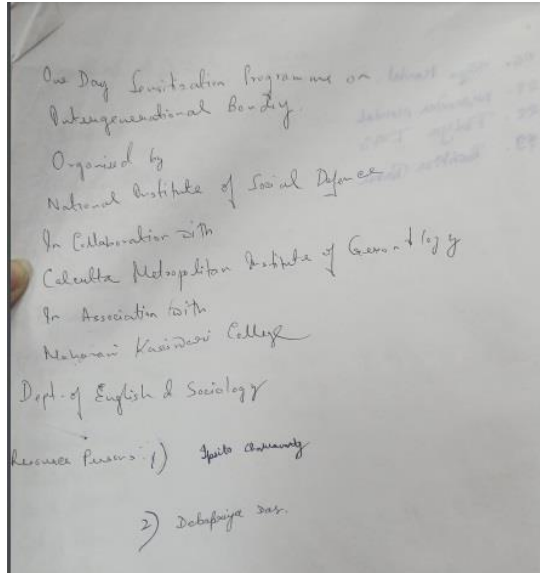 One Day Sensitization Programme on
Intergenerational Bonding.
Organised by
National Institute of Social Defence
In Collaboration with
Calcutta Metropolitan Institute of Gerontology
In Association with
Maharani Kasiswari College
Dept. of English & Sociology
Resource Persons: 1) Ipsita Chakravarty
2) Debapriya Das.